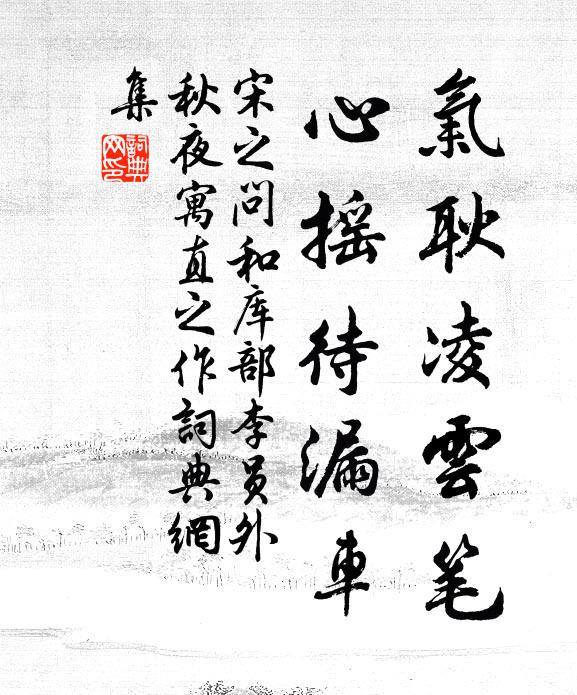 氣耿凌雲笔
心摇待漏車
宋之问和库部李员外
秋夜寓直之作詞典網
集
詞典
网印